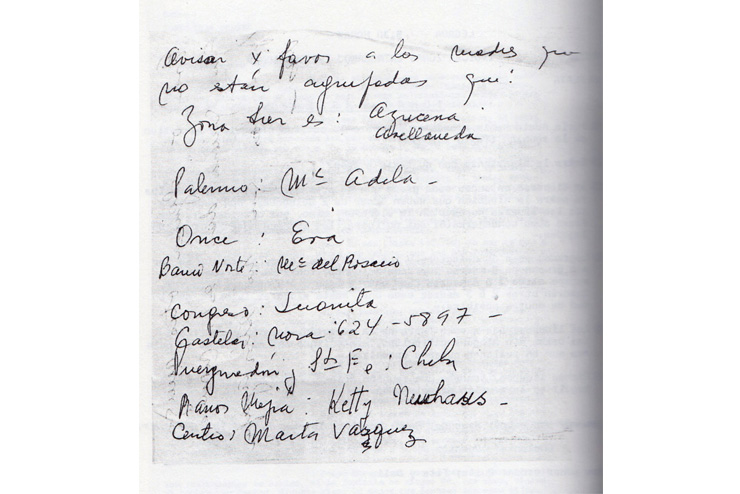 Avisar x favor a las madres que
no están agrupadas que:
Zona Sur es: Azucena
Avellaneda
Palermo: Mª Adela -
Once : Eva
Barrio Norte: Mª del Rosario
Congreso: Juanita
Castelar: Nora: 624-5897 -
Pueyrredón y Sta Fe: Chela
Ramos Mejía: Ketty Neuhaus -
Centro: Marta Vazquez